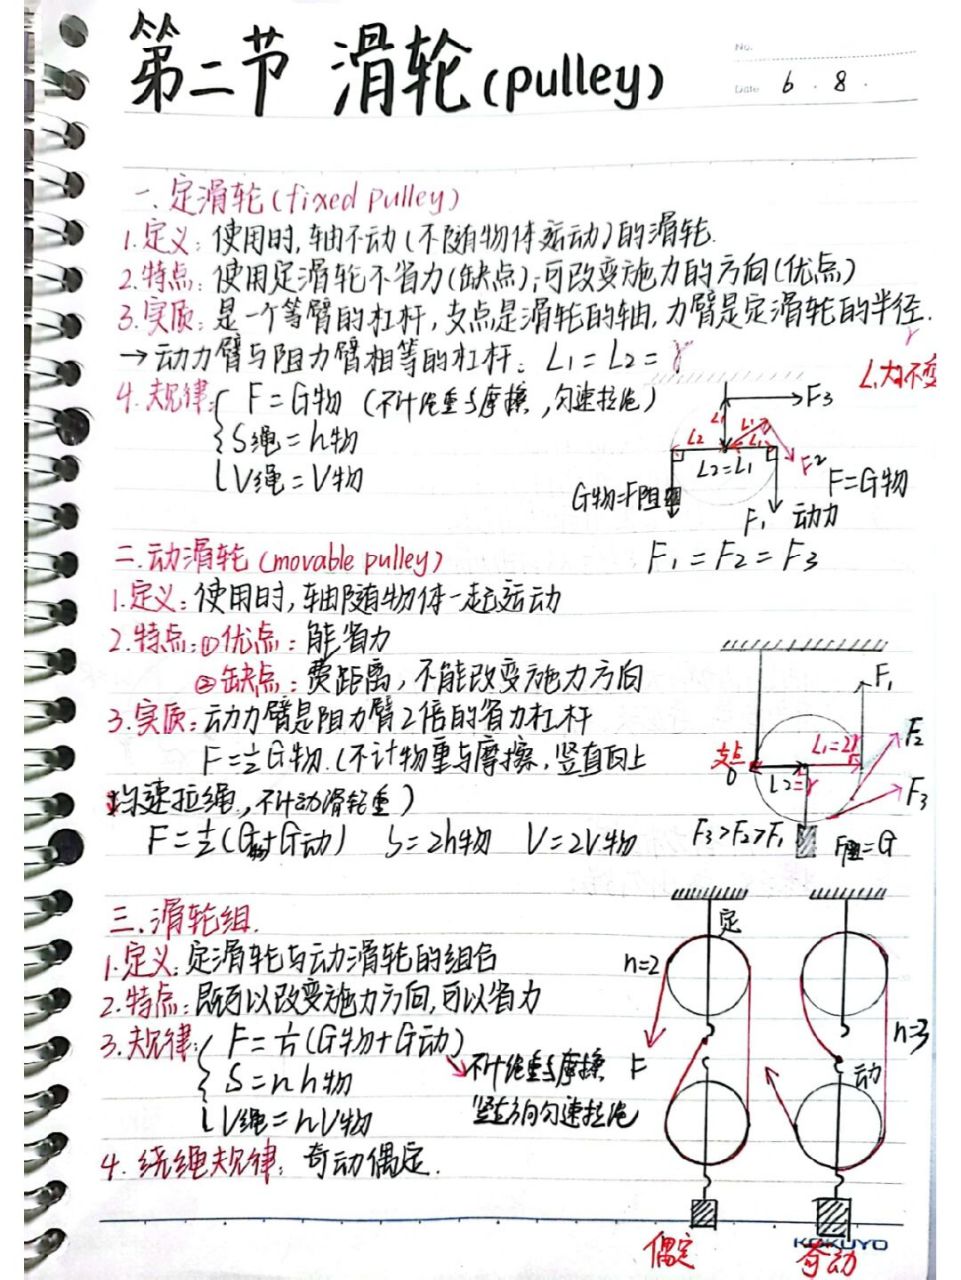 第二节 滑轮(pulley)
No.
Date 6 . 8 .
一、定滑轮(fixed pulley)
1.定义：使用时,轴不动(不随物体运动)的滑轮.
2.特点：使用定滑轮不省力(缺点);可改变施力的方向(优点)
3.实质：是一个等臂的杠杆,支点是滑轮的轴,力臂是定滑轮的半径.
r
→动力臂与阻力臂相等的杠杆：L₁=L₂=r
L₁大小不变
4.规律：F=G物 (不计绳重与摩擦,匀速拉绳)
S绳=h物
V绳=V物
F3
L₁
L₂ L₁ L₁
L₂=L₁
F²
G物=F阻
F=G物
F₁ 动力
F₁=F₂=F₃
二.动滑轮(movable pulley)
1.定义：使用时,轴随物体一起运动
2.特点：①优点：能省力
②缺点：费距离,不能改变施力方向
3.实质：动力臂是阻力臂2倍的省力杠杆
F=½G物.(不计物重与摩擦,竖直向上
匀速拉绳,不计动滑轮重)
F=½(G物+G动) S=2h物 V=2V物
F₁
F₂
L₁=2r
支点
O
L₂=r
F₃
F₃>F₂>F₁
F阻=G
三.滑轮组.
1.定义：定滑轮与动滑轮的组合
2.特点：既可以改变施力方向,可以省力
3.规律：F=1/n(G物+G动)
S=nh物
V绳=nV物
不计绳重与摩擦
竖直方向匀速拉绳
4.绕绳规律：奇动偶定.
定
n=2
F
n=3
动
偶定
奇动
KOKUYO